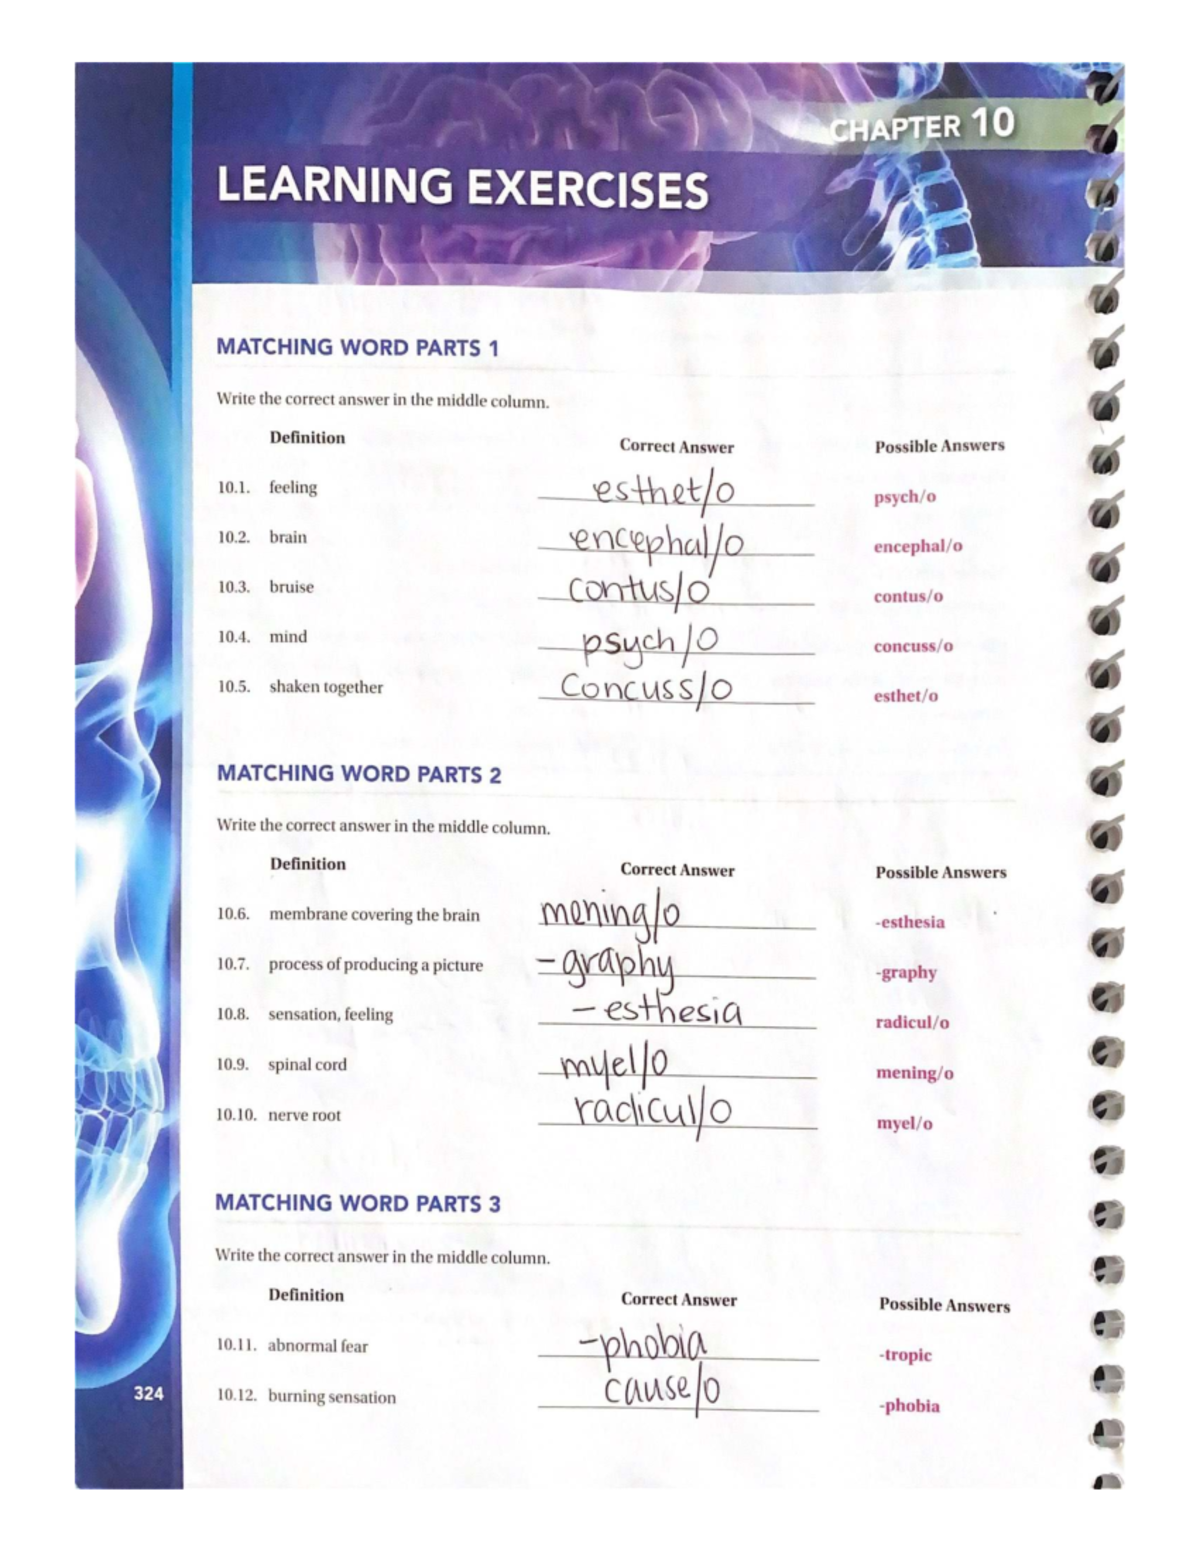 CHAPTER 10
LEARNING EXERCISES
MATCHING WORD PARTS 1
Write the correct answer in the middle column.
Definition Correct Answer Possible Answers
10.1. feeling esthet/o psych/o
10.2. brain encephal/o encephal/o
10.3. bruise contus/o contus/o
10.4. mind psych/o concuss/o
10.5. shaken together Concuss/o esthet/o
MATCHING WORD PARTS 2
Write the correct answer in the middle column.
Definition Correct Answer Possible Answers
10.6. membrane covering the brain mening/o -esthesia
10.7. process of producing a picture -graphy -graphy
10.8. sensation, feeling -esthesia radicul/o
10.9. spinal cord myel/o mening/o
10.10. nerve root radicul/o myel/o
MATCHING WORD PARTS 3
Write the correct answer in the middle column.
Definition Correct Answer Possible Answers
10.11. abnormal fear -phobia -tropic
10.12. burning sensation cause/o -phobia
324